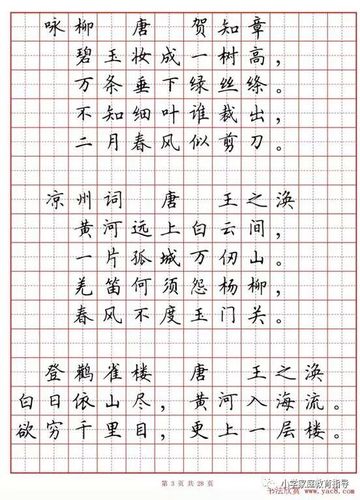 咏柳 唐 贺知章
碧玉妆成一树高，
万条垂下绿丝绦。
不知细叶谁裁出，
二月春风似剪刀。
凉州词 唐 王之涣
黄河远上白云间，
一片孤城万仞山。
羌笛何须怨杨柳，
春风不度玉门关。
登鹳雀楼 唐 王之涣
白日依山尽，黄河入海流。
欲穷千里目，更上一层楼。
第 3 页 共 28 页
小学家庭教育指导
书法欣赏 www.yac8.com